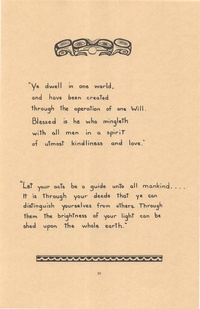 "Ye dwell in one world,
and have been created
through the operation of one Will.
Blessed is he who mingleth
with all men in a spirit
of utmost kindliness and love."
"Let your acts be a guide unto all mankind....
It is through your deeds that ye can
distinguish yourselves from others. Through
them the brightness of your light can be
shed upon the whole earth."